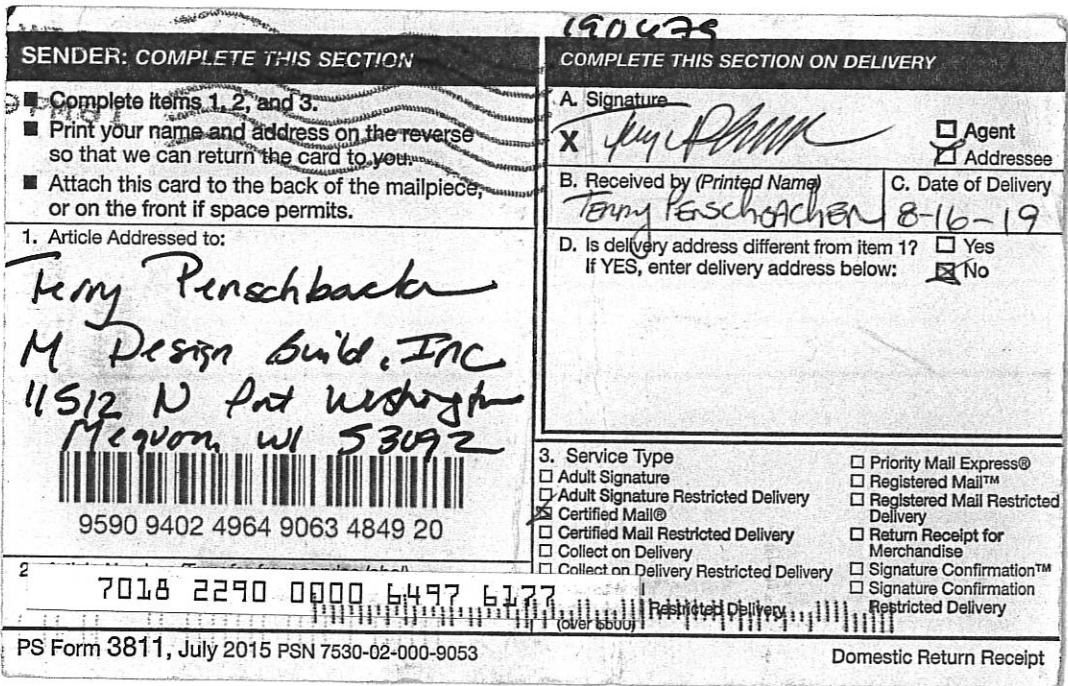 190479
SENDER: COMPLETE THIS SECTION
■ Complete items 1, 2, and 3.
■ Print your name and address on the reverse
so that we can return the card to you.
■ Attach this card to the back of the mailpiece,
or on the front if space permits.
1. Article Addressed to:
Terry Penschbacker
M Design Build, Inc
11512 N Port Washington
Mequon, WI 53092
9590 9402 4964 9063 4849 20
2
7018 2290 0000 6497 6177
PS Form 3811, July 2015 PSN 7530-02-000-9053
COMPLETE THIS SECTION ON DELIVERY
A. Signature
X
☐ Agent
☑ Addressee
B. Received by (Printed Name)
TERRY PENSCHBACHER
C. Date of Delivery
8-16-19
D. Is delivery address different from item 1? ☐ Yes
If YES, enter delivery address below: ☒ No
3. Service Type
☐ Adult Signature
☐ Adult Signature Restricted Delivery
☒ Certified Mail®
☐ Certified Mail Restricted Delivery
☐ Collect on Delivery
☐ Collect on Delivery Restricted Delivery
Restricted Delivery
(over $500)
☐ Priority Mail Express®
☐ Registered Mail™
☐ Registered Mail Restricted
Delivery
☐ Return Receipt for
Merchandise
☐ Signature Confirmation™
☐ Signature Confirmation
Restricted Delivery
Domestic Return Receipt